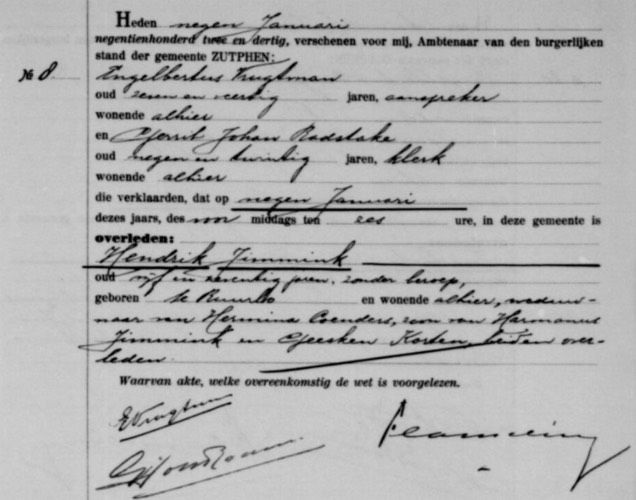 Heden negen Januari
negentienhonderd twee en dertig, verschenen voor mij, Ambtenaar van den burgerlijken
stand der gemeente ZUTPHEN:
№ 8 Engelbertus Vrugtman
oud zeven en veertig jaren, aanspreker
wonende alhier
en Gerrit Johan Radstake
oud negen en twintig jaren, klerk
wonende alhier
die verklaarden, dat op negen Januari
dezes jaars, des voor middags ten zes ure, in deze gemeente is
overleden:
Hendrik Jimmink
oud vijf en zeventig jaren, zonder beroep,
geboren te Ruurlo en wonende alhier, weduw-
naar van Hermina Coenders, zoon van Harmanus
Jimmink en Geesken Korten, beiden over-
leden.
Waarvan akte, welke overeenkomstig de wet is voorgelezen.
EVrugtman